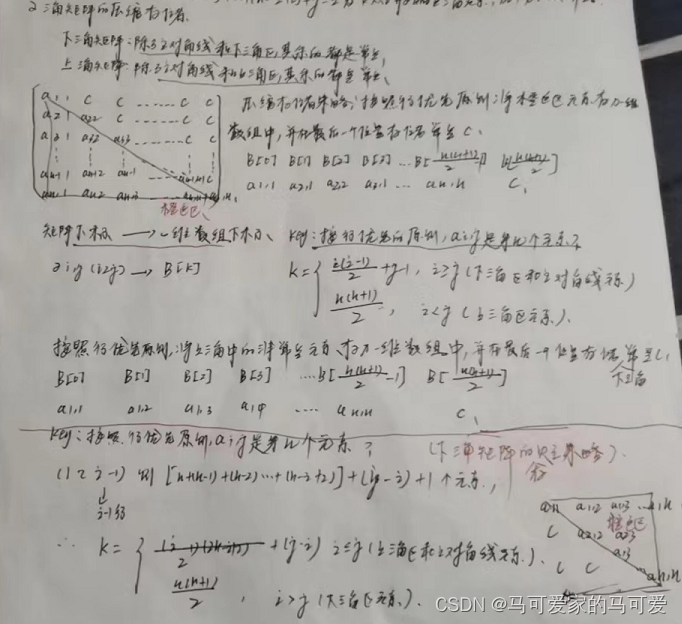 2 三角矩阵的压缩存储.
下三角矩阵: 除了主对角线和下三角区,其余的都是常量,
上三角矩阵: 除了主对角线和上三角区,其余的都是常量、
a1,1 C C …… C C
a2,1 a2,2 C …… C C
a3,1 a3,2 …… C C
an,1 an,2 an,3 …… an,n
橙色区、
压缩存储策略:按照行优先原则将橙色区元素存入一维
数组中,并在最后一个位置存储常量C.
B[0] B[1] B[2] B[3] … B[n(n+1)/2-1] B[n(n+1)/2]
a1,1 a2,1 a2,2 a3,1 … an,n C,
矩阵下标 → 一维数组下标、 Key:按行优先的原则,aij是第几个元素?
aij (i≥j) → B[k]
k= { i(i-1)/2 + j-1, i≥j (下三角区和主对角线元素.)
n(n+1)/2, i<j (上三角区元素.).
按照行优先原则,将上三角中的非常量元素、存入一维数组中,并在最后一个位置存储常量C,
下三角
B[0] B[1] B[2] B[3] …. B[n(n+1)/2-1] B[n(n+1)/2]
a1,1 a1,2 a1,3 a1,4 …. an,n C,
Key:按照行优先原则,aij是第几个元素?
(下三角矩阵的压缩策略).
(1~i-1) 则 [n+(n-1)+(n-2)…+(n-i+2)]+(j-i)+1个元素,
i-1行
∴ k= { (i-1)(2n-i+2)/2 + (j-i) i≤j (上三角区和主对角线元素).
n(n+1)/2, i>j (下三角区元素.).
a1,1 a1,2 a1,3 … a1,n
橙色区
C a2,2 a2,3
C C
an,n
CSDN @马可爱家的马可爱